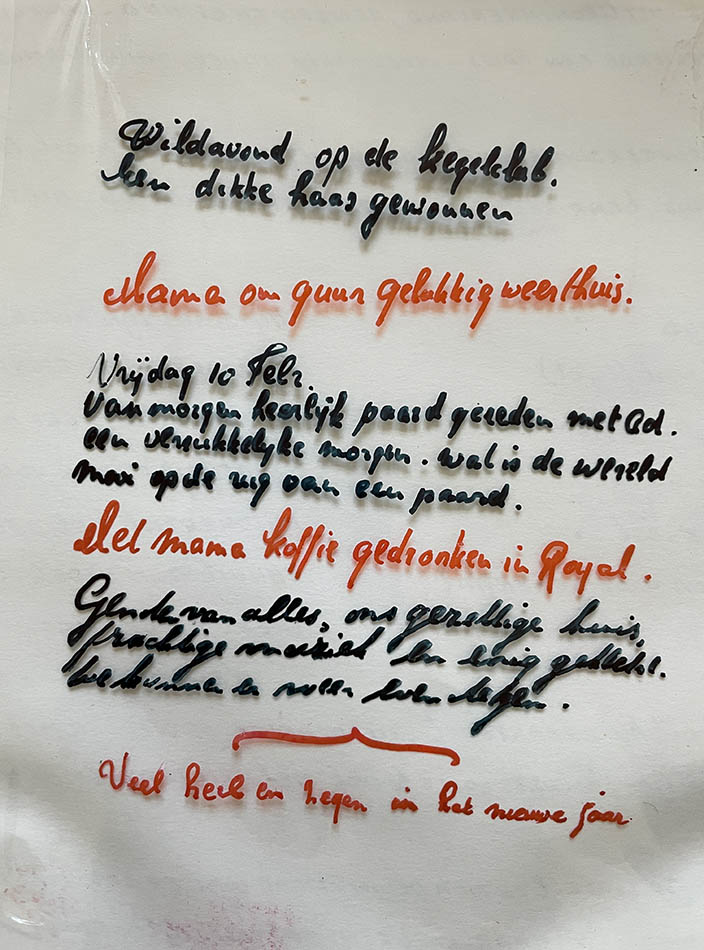 Wildavond op de kegelclub.
Een dikke haas gewonnen
Mama om 9 uur gelukkig weer thuis.
Vrijdag 10 Febr.
Van morgen heerlijk paard gereden met Ad.
een verrukkelijke morgen. wat is de wereld
mooi op de rug van een paard.
Met mama koffie gedronken in Royal.
van alles, ons gezellige huis,
prachtige muziek en
we kunnen er weer even tegen.
Veel heil en zegen in het nieuwe jaar